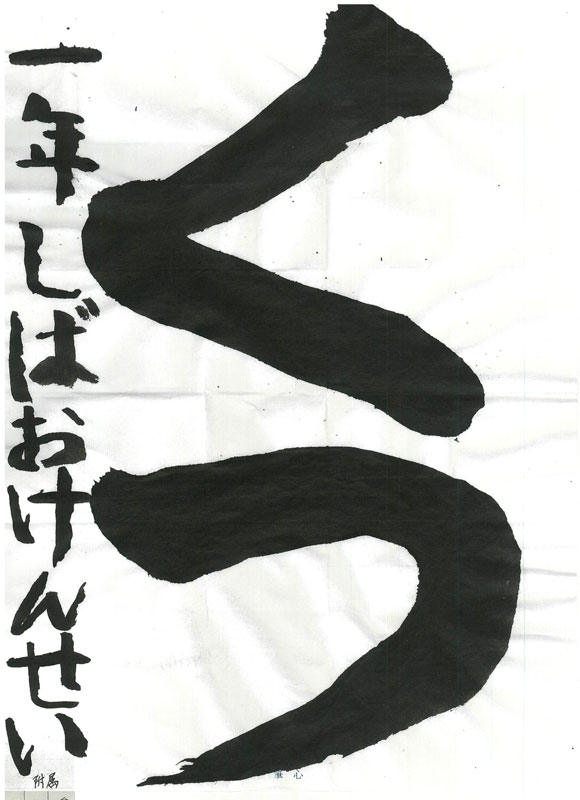 くつ
一年しばおけんせい
附属